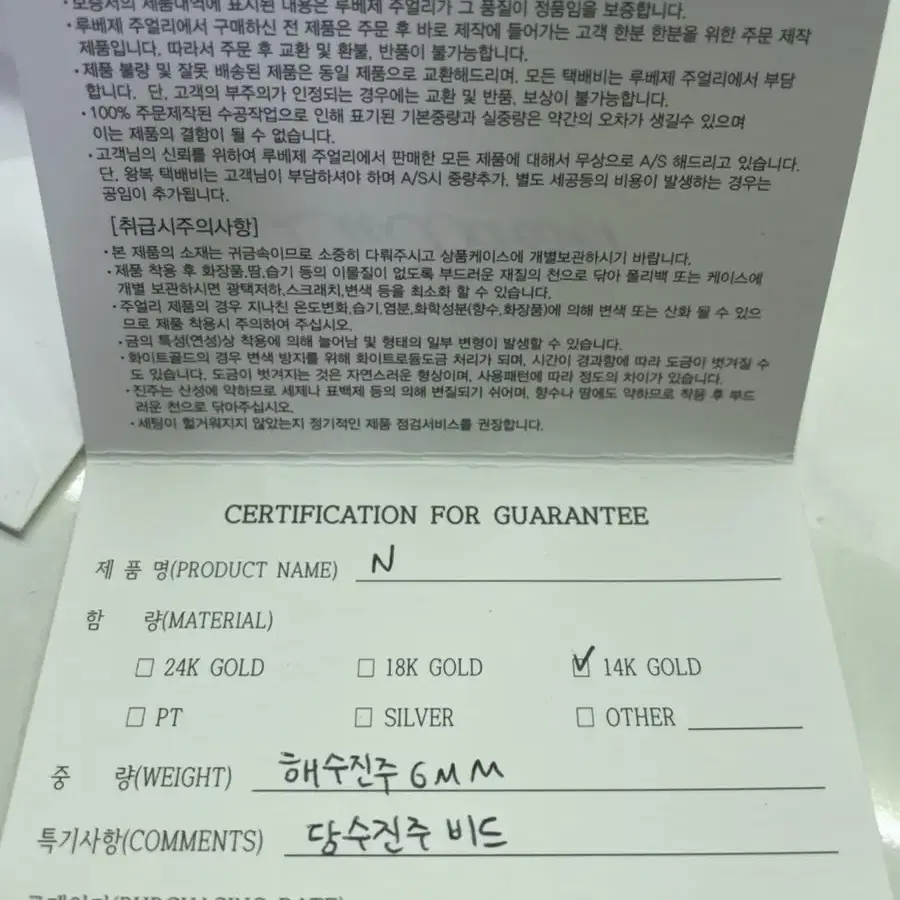 • 보증서의 제품내역에 표시된 내용은 루베제 주얼리가 그 품질이 정품임을 보증합니다.
• 루베제 주얼리에서 구매하신 전 제품은 주문 후 바로 제작에 들어가는 고객 한분 한분을 위한 주문 제작
제품입니다. 따라서 주문 후 교환 및 환불, 반품이 불가능합니다.
• 제품 불량 및 잘못 배송된 제품은 동일 제품으로 교환해드리며, 모든 택배비는 루베제 주얼리에서 부담
합니다. 단, 고객의 부주의가 인정되는 경우에는 교환 및 반품, 보상이 불가능합니다.
• 100% 주문제작된 수공작업으로 인해 표기된 기본중량과 실중량은 약간의 오차가 생길수 있으며
이는 제품의 결함이 될 수 없습니다.
• 고객님의 신뢰를 위하여 루베제 주얼리에서 판매한 모든 제품에 대해서 무상으로 A/S 해드리고 있습니다.
단, 왕복 택배비는 고객님이 부담하셔야 하며 A/S시 중량추가, 별도 세공등의 비용이 발생하는 경우는
공임이 추가됩니다.
[취급시주의사항]
• 본 제품의 소재는 귀금속이므로 소중히 다뤄주시고 상품케이스에 개별보관하시기 바랍니다.
• 제품 착용 후 화장품,땀,습기 등의 이물질이 없도록 부드러운 재질의 천으로 닦아 폴리백 또는 케이스에
개별 보관하시면 광택저하,스크래치,변색 등을 최소화 할 수 있습니다.
• 주얼리 제품의 경우 지나친 온도변화,습기,염분,화학성분(향수,화장품)에 의해 변색 또는 산화 될 수 있으
므로 제품 착용시 주의하여 주십시오.
• 금의 특성(연성)상 착용에 의해 늘어남 및 형태의 일부 변형이 발생할 수 있습니다.
• 화이트골드의 경우 변색 방지를 위해 화이트로듐도금 처리가 되며, 시간이 경과함에 따라 도금이 벗겨질 수
도 있습니다. 도금이 벗겨지는 것은 자연스러운 형상이며, 사용패턴에 따라 정도의 차이가 있습니다.
• 진주는 산성에 약하므로 세제나 표백제 등의 의해 변질되기 쉬어며, 향수나 땀에도 약하므로 착용 후 부드
러운 천으로 닦아주십시오.
• 세팅이 헐거워지지 않았는지 정기적인 제품 점검서비스를 권장합니다.
CERTIFICATION FOR GUARANTEE
제 품 명(PRODUCT NAME) N
함 량(MATERIAL)
☐ 24K GOLD ☐ 18K GOLD ☑ 14K GOLD
☐ PT ☐ SILVER ☐ OTHER
중 량(WEIGHT) 해수진주 6MM
특기사항(COMMENTS) 담수진주 비드